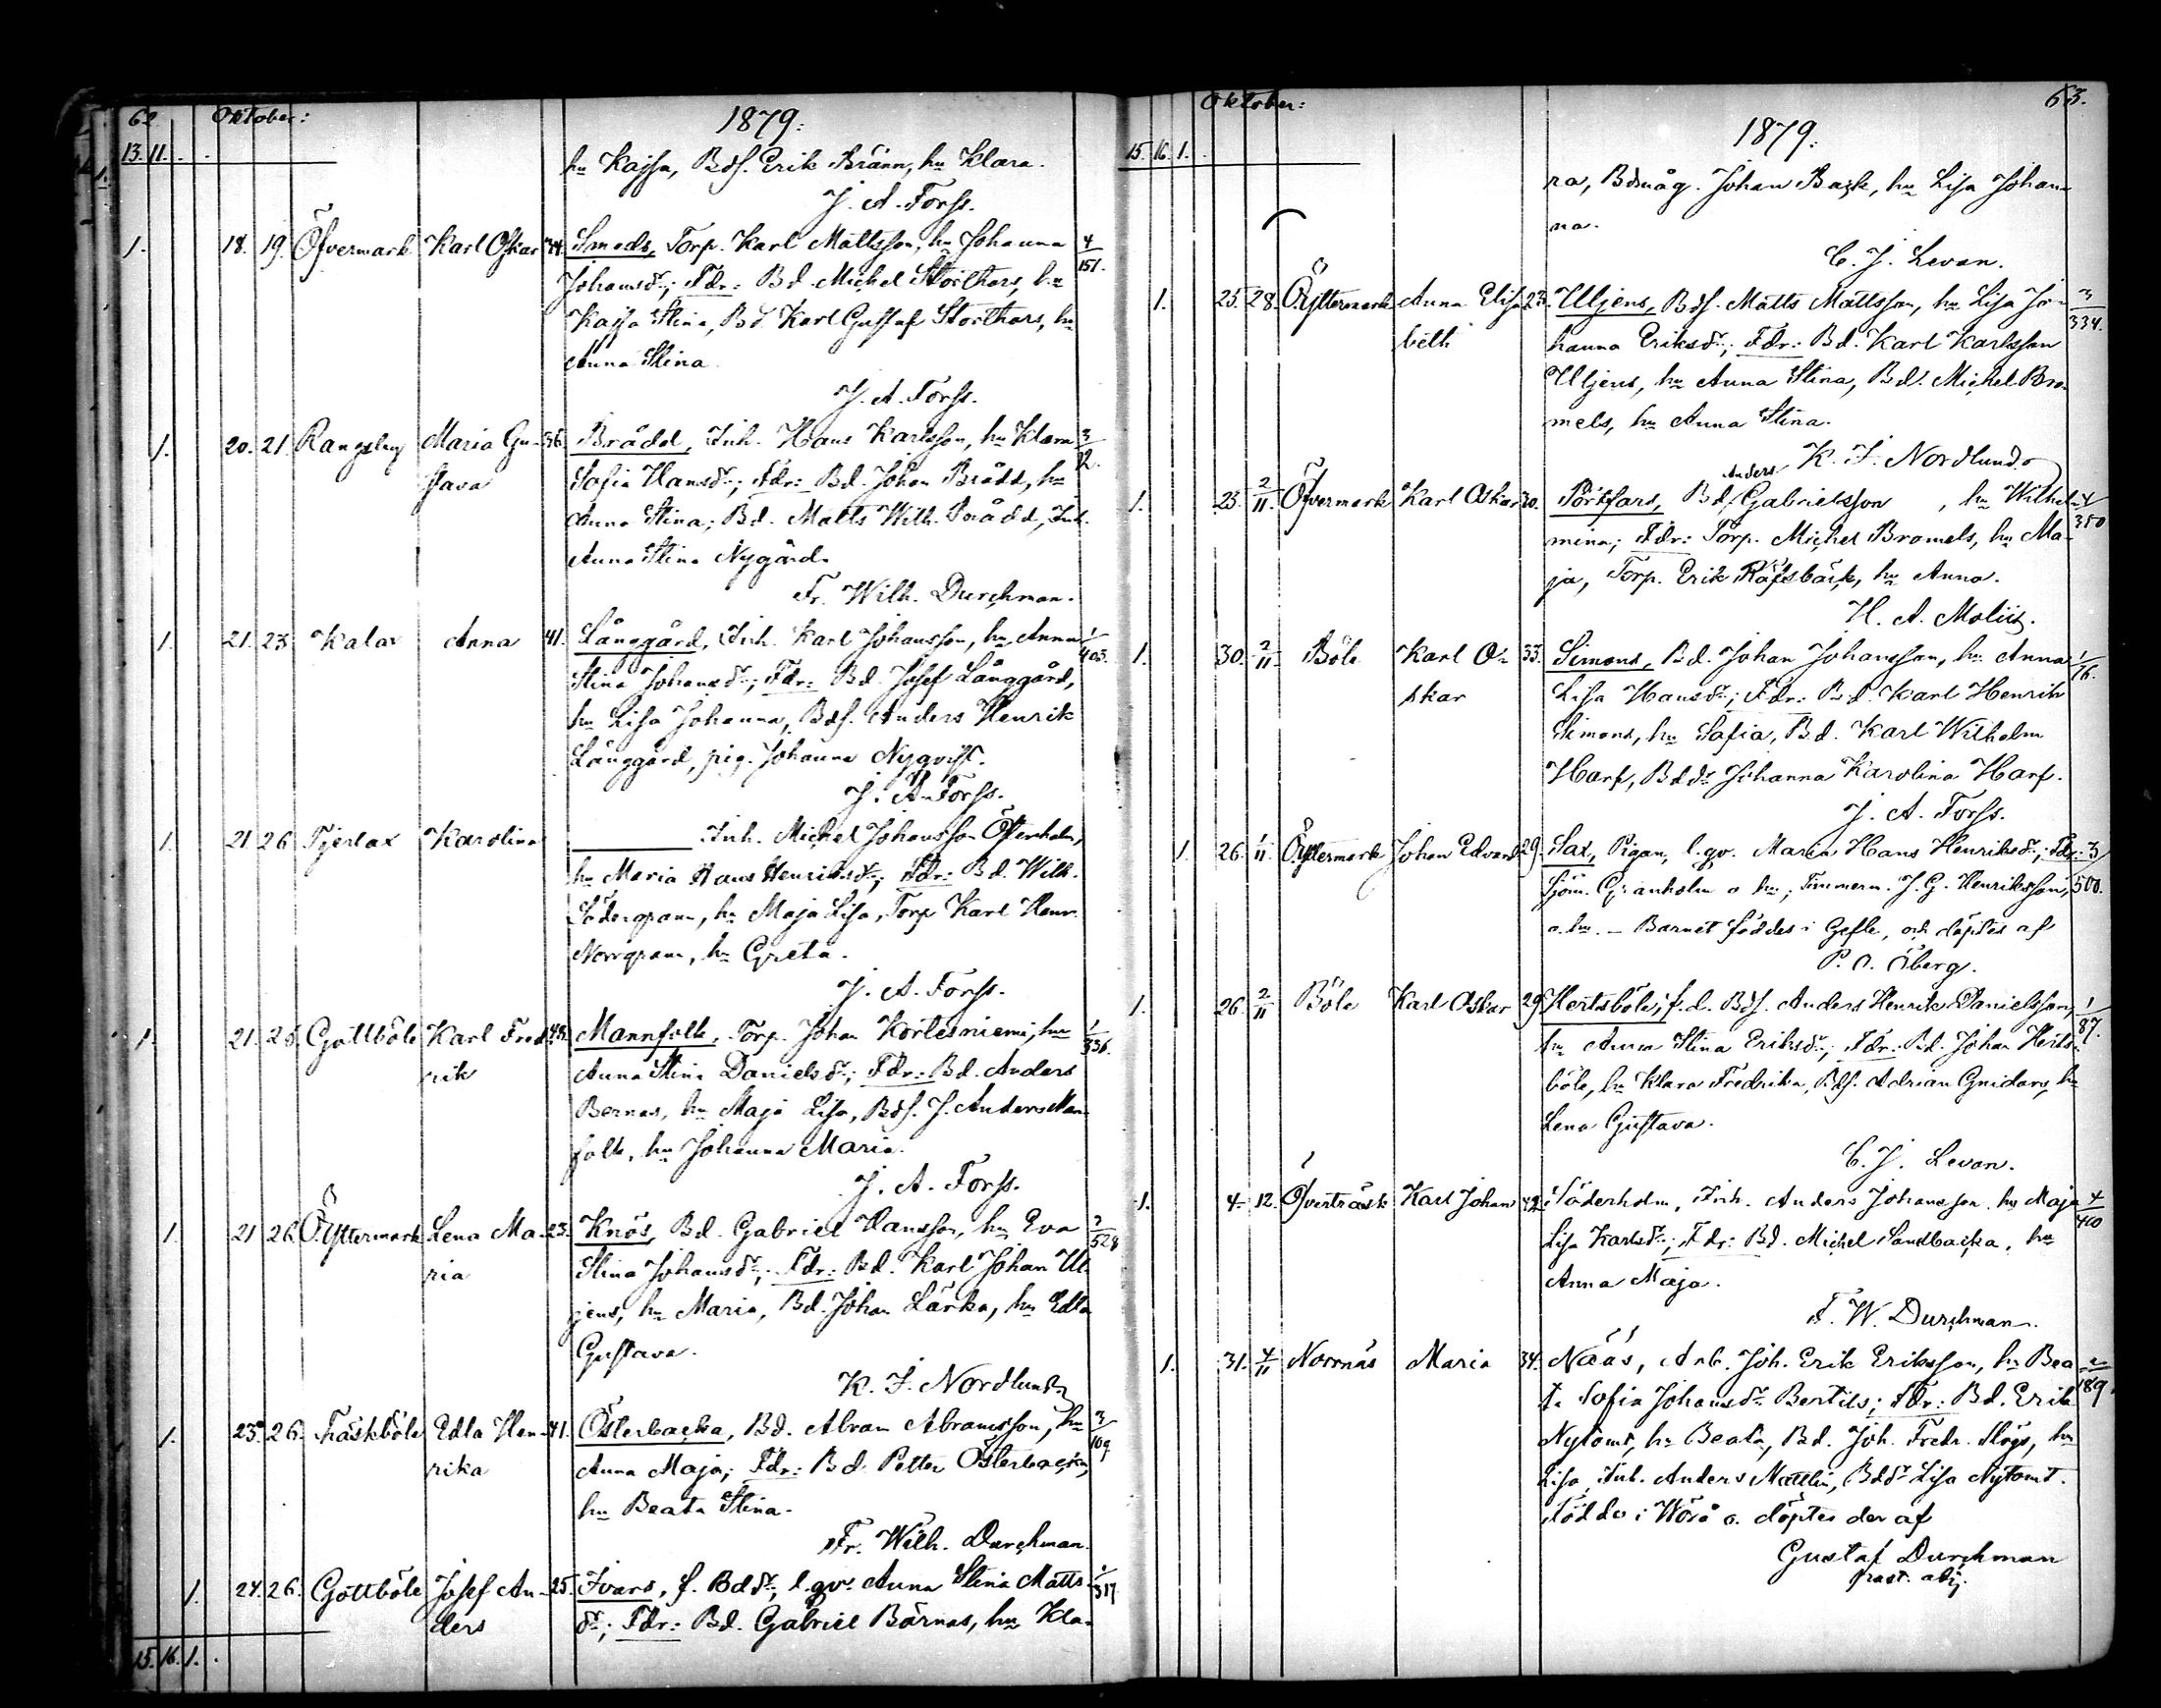 62 Oktober: 1879.
13. 11. . .
hu Kajsa, Bdf. Erik Bränn, hu Klara.
J. A. Forss.
1. 18. 19. Öfvermark Karl Oskar 34. Smeds, Torp. Karl Mattsson, hu Johanna 4/151.
Johansdr; Fdr: Bd. Michel Storthors, hu
Kajsa Stina, Bd. Karl Gustaf Storthors, hu
Anna Stina.
J. A. Forss.
1. 20. 21. Rangsby Maria Gu- 36. Brådd, Inh. Hans Karlsson, hu Klara 3/12.
stava Sofia Hansdr; Fdr: Bd. Johan Brådd, hu
Anna Stina; Bd. Matts Wilh. Brådd, Inh.
Anna Stina Nygård.
Fr. Wilh. Durchman.
1. 21. 23. Kalax Anna 41. Långgård, Inh. Karl Johansson, hu Anna 1/403.
Stina Johansdr; Fdr: Bd. Josef Långgård,
hu Lisa Johanna, Bdf. Anders Henrik
Långgård, pig. Johanna Nyqvist.
J. A. Forss.
1. 21. 26. Tjerlax Karolina Inh. Michel Johansson Österholm,
hu Maria Hans Henriksdr; Fdr: Bd. Wilh.
Södergran, hu Maja Lisa, Torp Karl Henr.
Norrgran, hu Greta.
J. A. Forss.
1. 21. 26. Gottböle Karl Fred- 43. Mannfolk, Torp. Johan Kortesniemi, hu 1/336.
rik Anna Stina Danielsdr; Fdr: Bd. Anders
Bernas, hu Maja Lisa, Bdf. J. Anders Man-
folk, hu Johanna Maria.
J. A. Forss.
1. 21. 26. Ö Yttermark Lena Ma- 23. Knös, Bd. Gabriel Hansson, hu Eva 3/528
ria Stina Johansdr; Fdr: Bd. Karl Johan Ul-
jens, hu Maria, Bd. Johan Lärka, hu Edla
Gustava.
K. F. Nordlund
1. 23. 26. Träskböle Edla Hen- 41. Österbacka, Bd. Abram Abramsson, hu 3/109
rika Anna Maja; Fdr: Bd. Petter Österbacka,
hu Beata Stina.
Fr. Wilh. Durchman.
1. 24. 26. Gottböle Josef An- 25. Ivars, f. Bddr, l.gv. Anna Stina Matts- 1/317
ders dr; Fdr: Bd. Gabriel Bärnas, hu Kla-
15. 16. 1. .
Oktober: 1879. 63.
15. 16. 1. .
ra, Bdmåg. Johan Back, hu Lisa Johan-
na.
C. J. Levan.
1. 25. 28. Ö Yttermark Anna Elisa- 23. Uljens, Bdf. Matts Mattsson, hu Lisa Jo- 3/334.
beth hanna Eriksdr; Fdr: Bd. Karl Karlsson
Uljens, hu Anna Stina, Bd. Michel Bro-
mels, hu Anna Stina.
K. F. Nordlund
1. 23. 2/11. Öfvermark Karl Oskar 30. Pörtfars, Bd. Anders Gabrielsson, hu Wilhel- 4/350
mina; Fdr: Torp. Michel Bromels, hu Ma-
ja, Torp. Erik Räfsbäck, hu Anna.
H. A. Moliis.
1. 30. 2/11 Böle Karl O- 33. Simons, Bd. Johan Johansson, hu Anna 1/16.
skar Lisa Hansdr; Fdr: Bd. Karl Henrik
Simons, hu Sofia, Bd. Karl Wilhelm
Harf, Bddr Johanna Karolina Harf.
J. A. Forss.
1. 26. 1/11. Ö Yttermark Johan Edvard 29. Sax, Pigan, l.gv. Maria Hans Henriksdr; Fdr: 3/500.
Sjöm. Granholm o hu; Timmerm. J. G. Henriksson,
o. hu. – Barnet föddes i Gefle, och döptes af
P. O. Öberg.
1. 26. 2/11 Böle Karl Oskar 29. Hertsböle, f.d. Bdf. Anders Henrik Danielsson, 1/87.
hu Anna Stina Eriksdr; Fdr: Bd. Johan Herts-
böle, hu Klara Fredrika, Bdf. Adrian Gnidars, hu
Lena Gustava.
C. J. Levan.
1. 4. 12. Öfverträsk Karl Johan 42. Söderholm, Inh. Anders Johansson, hu Maja 4/410
Lisa Karlsdr; Fdr: Bd. Michel Sandbacka, hu
Anna Maja.
F. W. Durchman.
1. 31. 4/11 Norrnäs Maria 34. Nääs, Arb. Joh. Erik Eriksson, hu Bea- 2/189.
ta Sofia Johansdr Bertils; Fdr: Bd. Erik
Nytomt, hu Beata, Bd. Joh. Fredr. Högs, hu
Lisa, Inh. Anders Mattlin, Bddr Lisa Nytomt.
Föddes i Wörå o. döptes der af
Gustaf Durchman
past. adj.